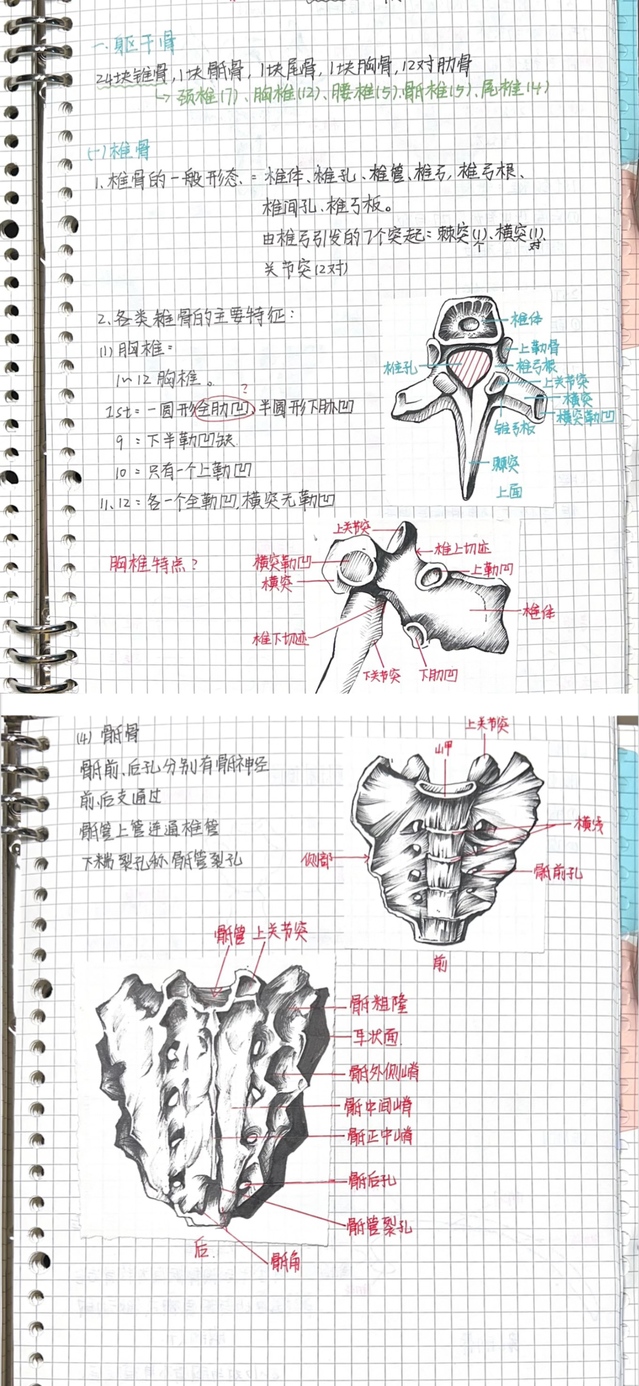 一.躯干骨
24块锥骨,1块骶骨,1块尾骨,1块胸骨,12对肋骨
→颈椎(7)、胸椎(12)、腰椎(5).骶椎(5)、尾椎(4)
(一)椎骨
1、椎骨的一般形态、= 椎体、椎孔、椎管、椎弓,椎弓根、
椎间孔、椎弓板。
由椎弓引发的7个突起:棘突(1)、横突(1).
个 对
关节突(2对)
2、各类椎骨的主要特征:
(1)胸椎=
1~12胸椎。
?
1st=一圆形全肋凹,半圆形下肋凹
9=下半勒凹缺
10=只有一个上勒凹
11、12=各一个全勒凹,横突无勒凹
椎体
上勒骨
椎孔
椎弓根
上关节突
横突
横突勒凹
椎弓板
棘突
上面
胸椎特点?
上关节突
椎上切迹
横突勒凹
上勒凹
横突
椎体
椎下切迹
下关节突
下肋凹
(4) 骶骨
骶前、后孔分别有骶神经
前、后支通过
骶管上管连通椎管
下端裂孔称骶管裂孔
上关节突
山甲
横线
侧部
骶前孔
前
骶管 上关节突
骶粗隆
耳状面
骶外侧嵴
骶中间嵴
骶正中嵴
骶后孔
骶管裂孔
后.
骶角